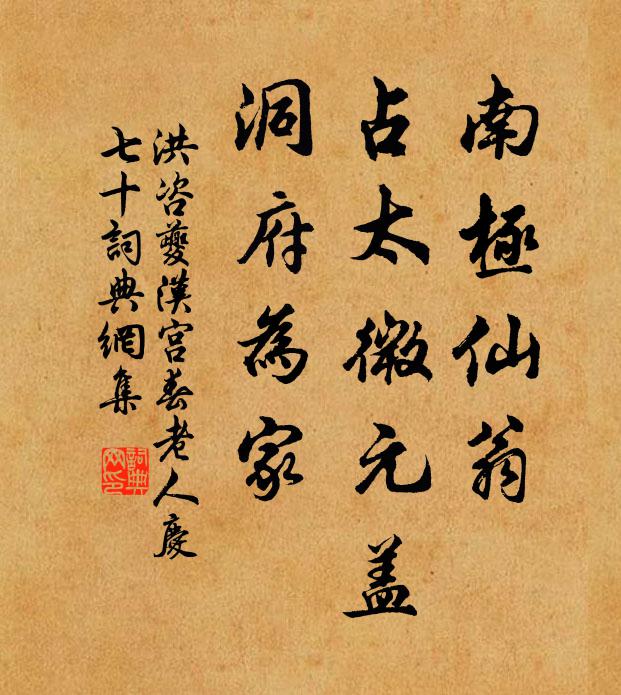 南極仙翁
占太微元盖
洞府為家
洪咨夔漢宮春老人慶
七十詞典網集
詞典網印